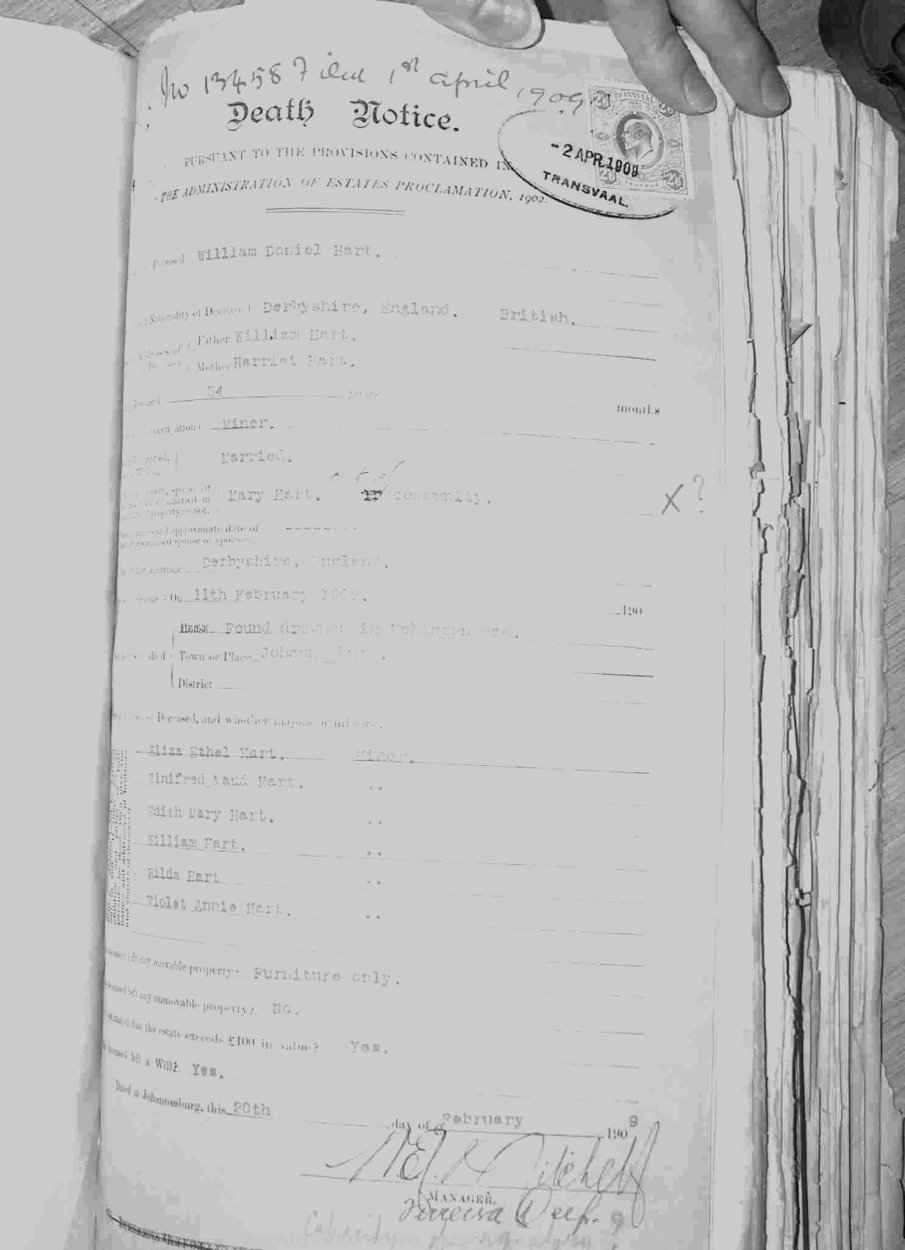 No 13458 Filed 1st april 1909.
Death Notice.
PURSUANT TO THE PROVISIONS CONTAINED IN
THE ADMINISTRATION OF ESTATES PROCLAMATION, 1902.
TRANSVAAL
2/6 2/6
-2 APR 1909
TRANSVAAL.
Deceased William Daniel Hart.
Nationality of Deceased Derbyshire, England. British.
Father William Hart.
Mother Harriet Hart.
34 years months
Miner.
Married.
out of
Mary Hart. in community. X?
approximate date of --------
Derbyshire, England.
On 11th February 1909. 190
House Found drowned in Robinson Dam.
Town or Place Johannesburg.
District
Deceased, and whether majors or minors.
Eliza Ethel Hart. Minor.
Winifred Maud Hart. ..
Edith Mary Hart. ..
William Hart. ..
Hilda Hart ..
Violet Annie Hart. ..
left any movable property? Furniture only.
left any immovable property? No.
that the estate exceeds £100 in value? Yes.
left a Will? Yes.
Dated at Johannesburg, this 20th day of February 1909
Mitchell
MANAGER.
Deep.